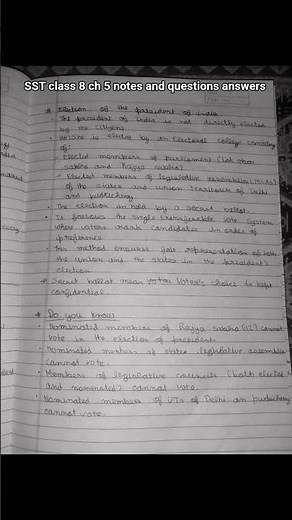 SST class 8 ch 5 notes and questions answers
* Election of the president of india
• The president of India is not directly elected
by the citizens
• He/she is elected by an Electoral college consisting
of:
- Elected members of parliament (lok
sabha and rajya sabha)
- Elected members of legislative assemblies (MLAs)
of the states and union territories of Delhi
and puducherry
• The election is held by a secret ballot.
• It follows the single transferable vote system
where voters mark candidates in order of
preference
• This method ensures fair representation of both
the union and the states in the president's
election
* Secret ballot mean voter's choice is kept
confidential
* Do you know
• Nominated members of Rajya sabha (12) cannot
vote in the election of president.
• Nominated members of state legislative assemblies
cannot vote.
• Members of legislative councils (both elected
and nominated) cannot vote.
• Nominated members of UTs of Delhi an puducherry
cannot vote.